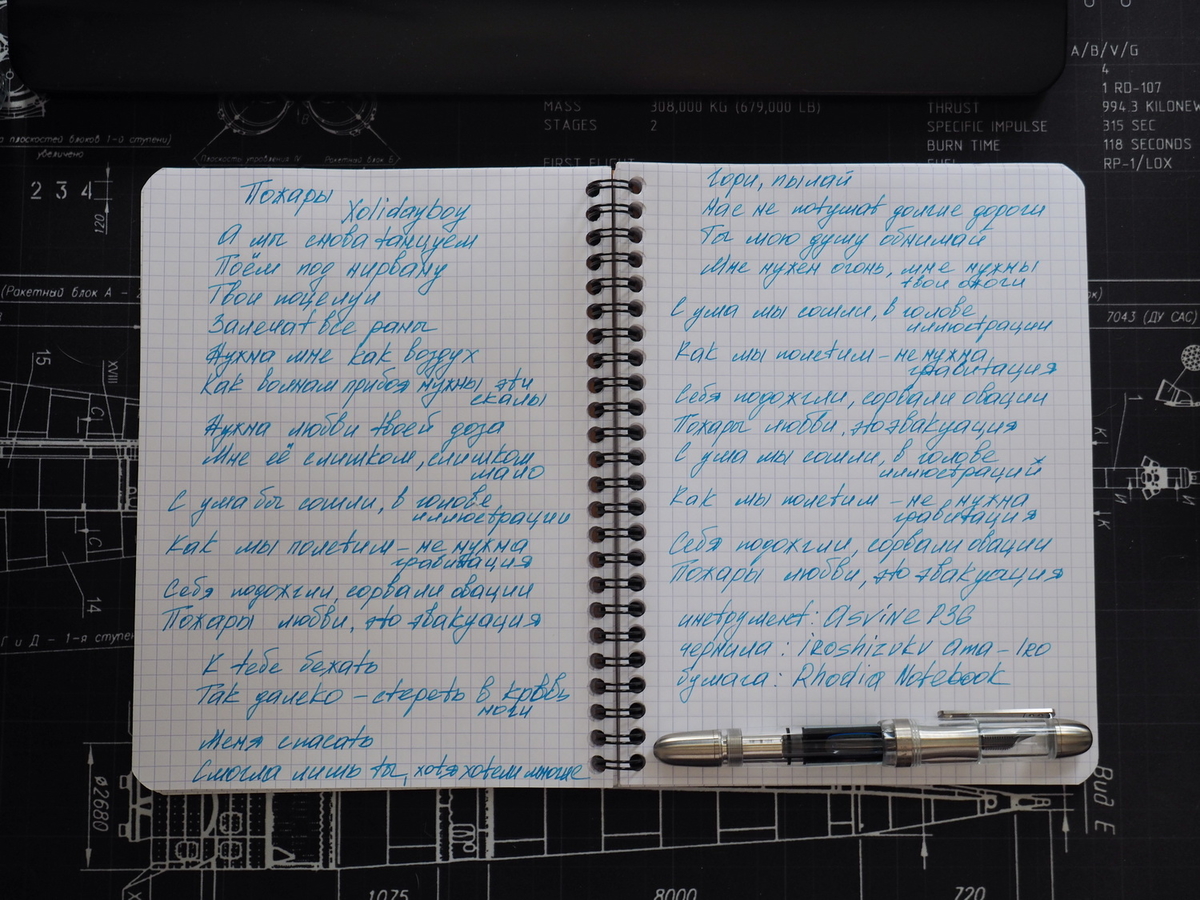 A/B/V/G
4
MASS 308,000 KG (679,000 LB)
STAGES 2
THRUST 994.3 KILONEW
SPECIFIC IMPULSE 315 SEC
BURN TIME 118 SECONDS
RP-1/LOX
1 RD-107
FIRST FLIGHT
плоскостей блоков 1-й ступени)
увеличено
Плоскость управления IV
Ракетный блок Б
2 3 4
120
(Ракетный блок А - 2
15
XVIII
C
C
14
Г и Д - 1-я ступен
ø2680
7043 (ДУ САС)
1
К
И
И
К
Вид Е
1075
8000
720
Пожары
Xolidayboy
А мы снова танцуем
Поём под нирвану
Твои поцелуи
Залечат все раны
Нужна мне как воздух
Как волнам прибоя нужны эти
скалы
Нужна любви твоей доза
Мне её слишком, слишком
мало
С ума бы сошли, в голове
иллюстрации
Как мы полетим – не нужна
гравитация
Себя подожгли, сорвали овации
Пожары любви, это эвакуация
К тебе бежать
Так далеко – стереть в кровь
ноги
Меня спасать
Смогла лишь ты, хотя хотели многие
Гори, пылай
Нас не потушат долгие дороги
Ты мою душу обнимай
Мне нужен огонь, мне нужны
твои ожоги
С ума мы сошли, в голове
иллюстрации
Как мы полетим – не нужна
гравитация
Себя подожгли, сорвали овации
Пожары любви, это эвакуация
С ума мы сошли, в голове
иллюстраций
Как мы полетим – не нужна
гравитация
Себя подожгли, сорвали овации
Пожары любви, это эвакуация
инструмент: Asvine P36
чернила: iroshizuku ama-iro
бумага: Rhodia Notebook